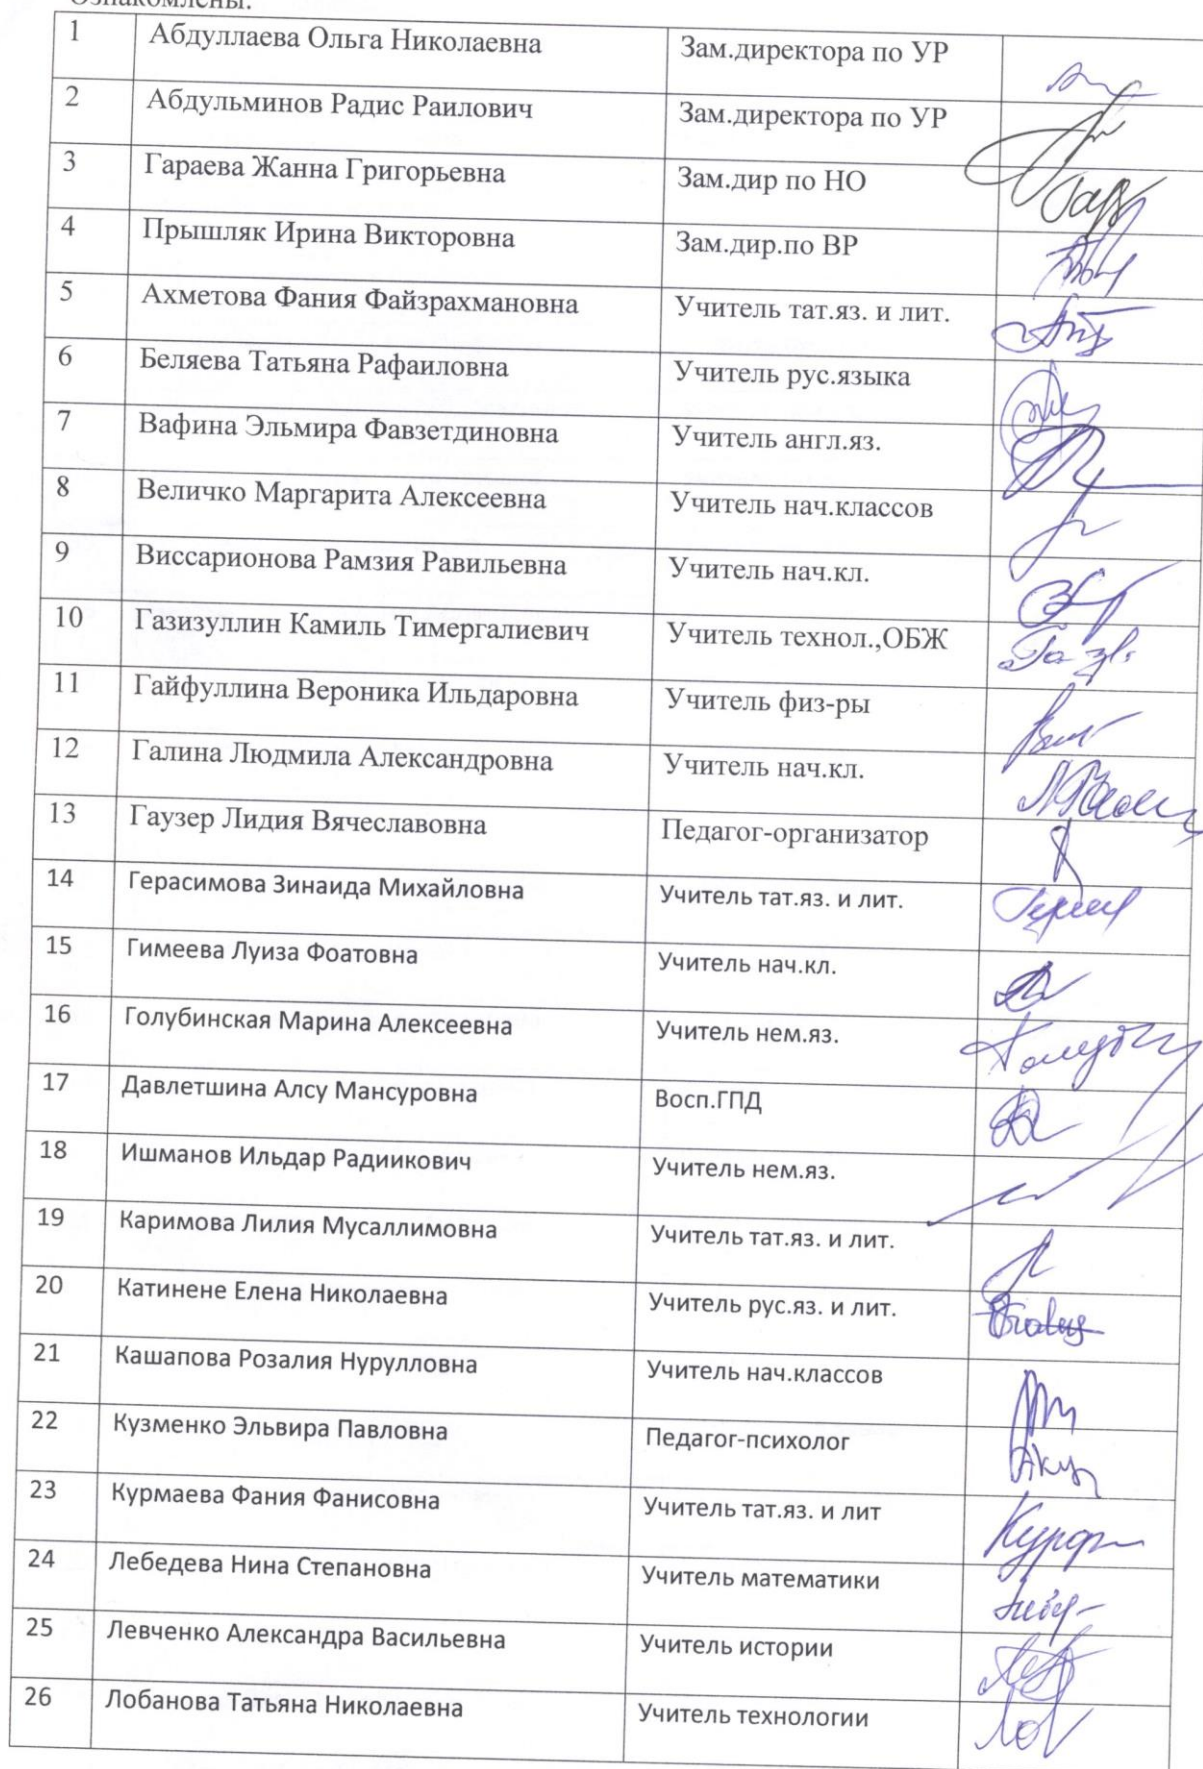 Ознакомлены:
1 Абдуллаева Ольга Николаевна Зам.директора по УР
2 Абдульминов Радис Раилович Зам.директора по УР
3 Гараева Жанна Григорьевна Зам.дир по НО
4 Прышляк Ирина Викторовна Зам.дир.по ВР
5 Ахметова Фания Файзрахмановна Учитель тат.яз. и лит.
6 Беляева Татьяна Рафаиловна Учитель рус.языка
7 Вафина Эльмира Фавзетдиновна Учитель англ.яз.
8 Величко Маргарита Алексеевна Учитель нач.классов
9 Виссарионова Рамзия Равильевна Учитель нач.кл.
10 Газизуллин Камиль Тимергалиевич Учитель технол.,ОБЖ
11 Гайфуллина Вероника Ильдаровна Учитель физ-ры
12 Галина Людмила Александровна Учитель нач.кл.
13 Гаузер Лидия Вячеславовна Педагог-организатор
14 Герасимова Зинаида Михайловна Учитель тат.яз. и лит.
15 Гимеева Луиза Фоатовна Учитель нач.кл.
16 Голубинская Марина Алексеевна Учитель нем.яз.
17 Давлетшина Алсу Мансуровна Восп.ГПД
18 Ишманов Ильдар Радиикович Учитель нем.яз.
19 Каримова Лилия Мусаллимовна Учитель тат.яз. и лит.
20 Катинене Елена Николаевна Учитель рус.яз. и лит.
21 Кашапова Розалия Нурулловна Учитель нач.классов
22 Кузменко Эльвира Павловна Педагог-психолог
23 Курмаева Фания Фанисовна Учитель тат.яз. и лит
24 Лебедева Нина Степановна Учитель математики
25 Левченко Александра Васильевна Учитель истории
26 Лобанова Татьяна Николаевна Учитель технологии